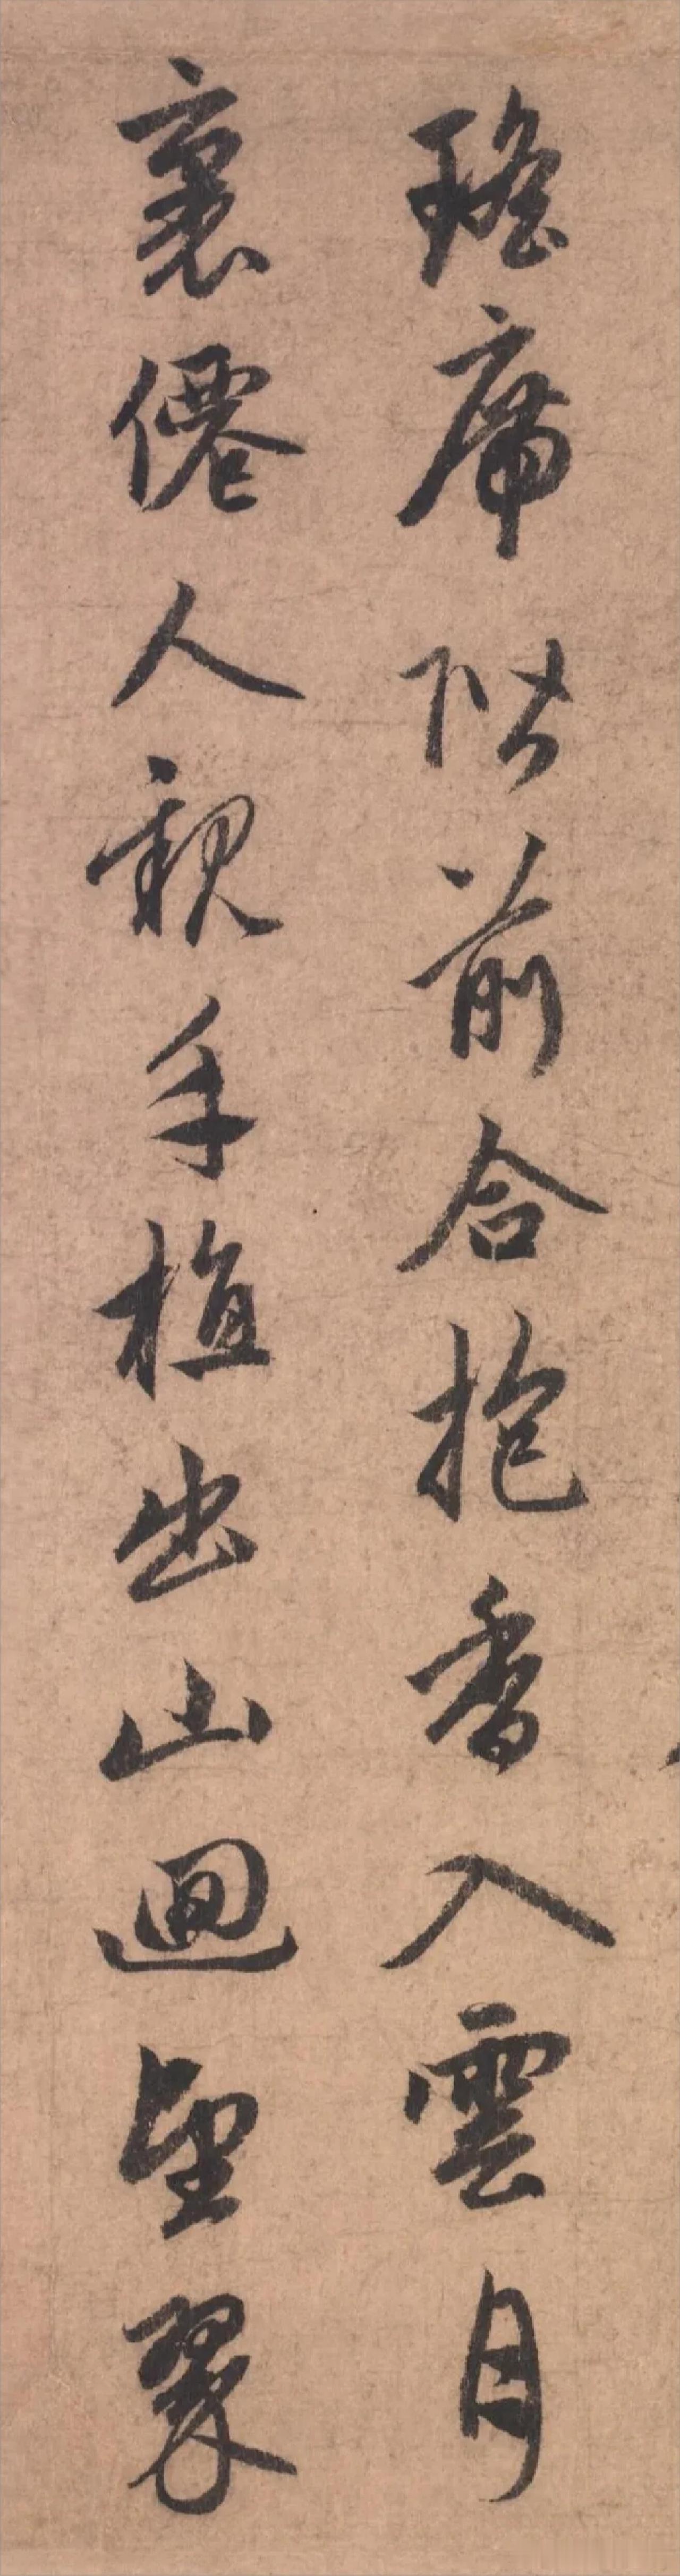 瑤席階前合抱香入雲月
裏僊人親手植出山迴望翠